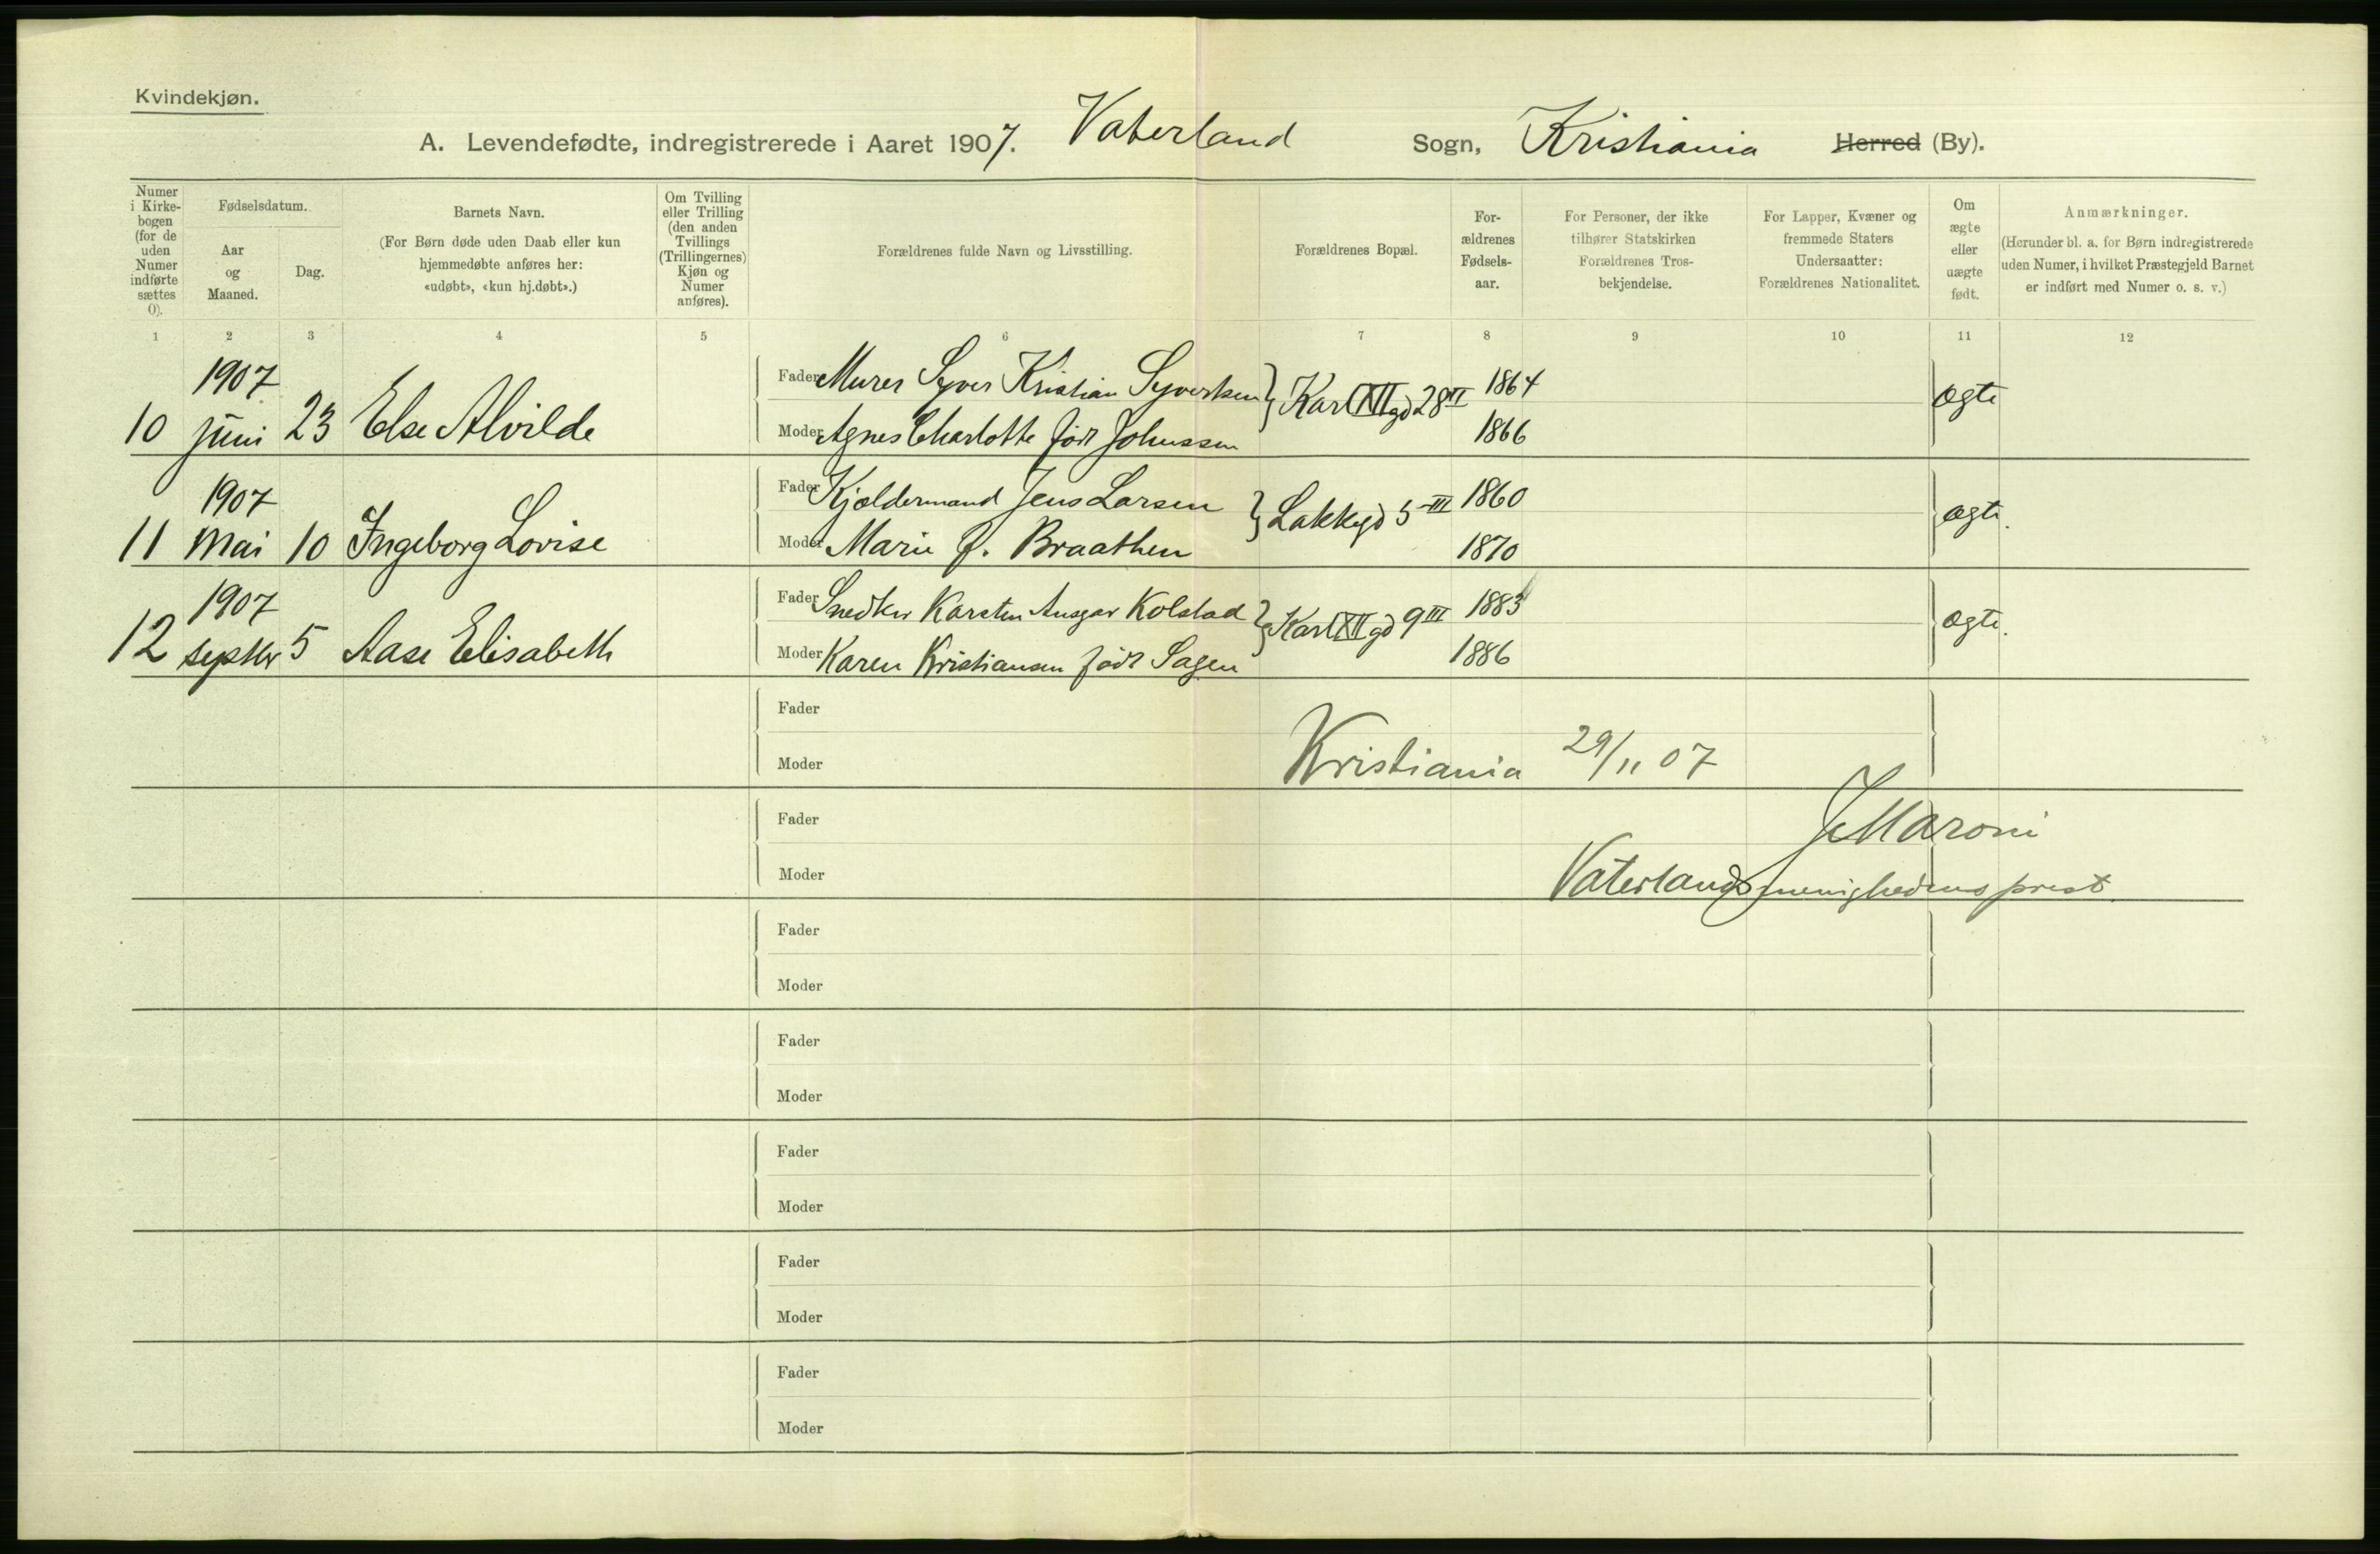 Kvindekjøn.
A. Levendefødte, indregistrerede i Aaret 1907. Vaterland Sogn, Kristiania Herred (By).
Numer i Kirke-bogen (for de uden Numer indførte sættes 0).
Fødselsdatum.
Aar og Maaned.
Dag.
Barnets Navn.
(For Børn døde uden Daab eller kun hjemmedøbte anføres her: «udøbt», «kun hj.døbt».)
Om Tvilling eller Trilling (den anden Tvillings (Trillingernes) Kjøn og Numer anføres).
Forældrenes fulde Navn og Livsstilling.
Forældrenes Bopæl.
For-ældrenes Fødsels-aar.
For Personer, der ikke tilhører Statskirken Forældrenes Tros-bekjendelse.
For Lapper, Kvæner og fremmede Staters Undersaatter: Forældrenes Nationalitet.
Om ægte eller uægte født.
Anmærkninger.
(Herunder bl. a. for Børn indregistrerede uden Numer, i hvilket Præstegjeld Barnet er indført med Numer o. s. v.)
1 2 3 4 5 6 7 8 9 10 11 12
1907 Fader Murer Syver Kristian Syvertsen } Karl XII gd 28 II 1864 ægte
10 juni 23 Else Alvilde Moder Agnes Charlotte født Johnssen 1866
1907 Fader Kjøldermand Jens Larsen } Lakkegd 5 III 1860 ægte.
11 Mai 10 Ingeborg Lovise Moder Marie f. Braathen 1870
1907 Fader Snedker Karsten Ansgar Kolstad } Karl XII gd 9 III 1883 ægte.
12 septbr 5 Aase Elisabeth Moder Karen Kristiansen født Sagen 1886
Fader
Moder
Kristiania 29/11 07
Fader
J Maroni
Moder
Vaterlands menigheds prest.
Fader
Moder
Fader
Moder
Fader
Moder
Fader
Moder
Fader
Moder